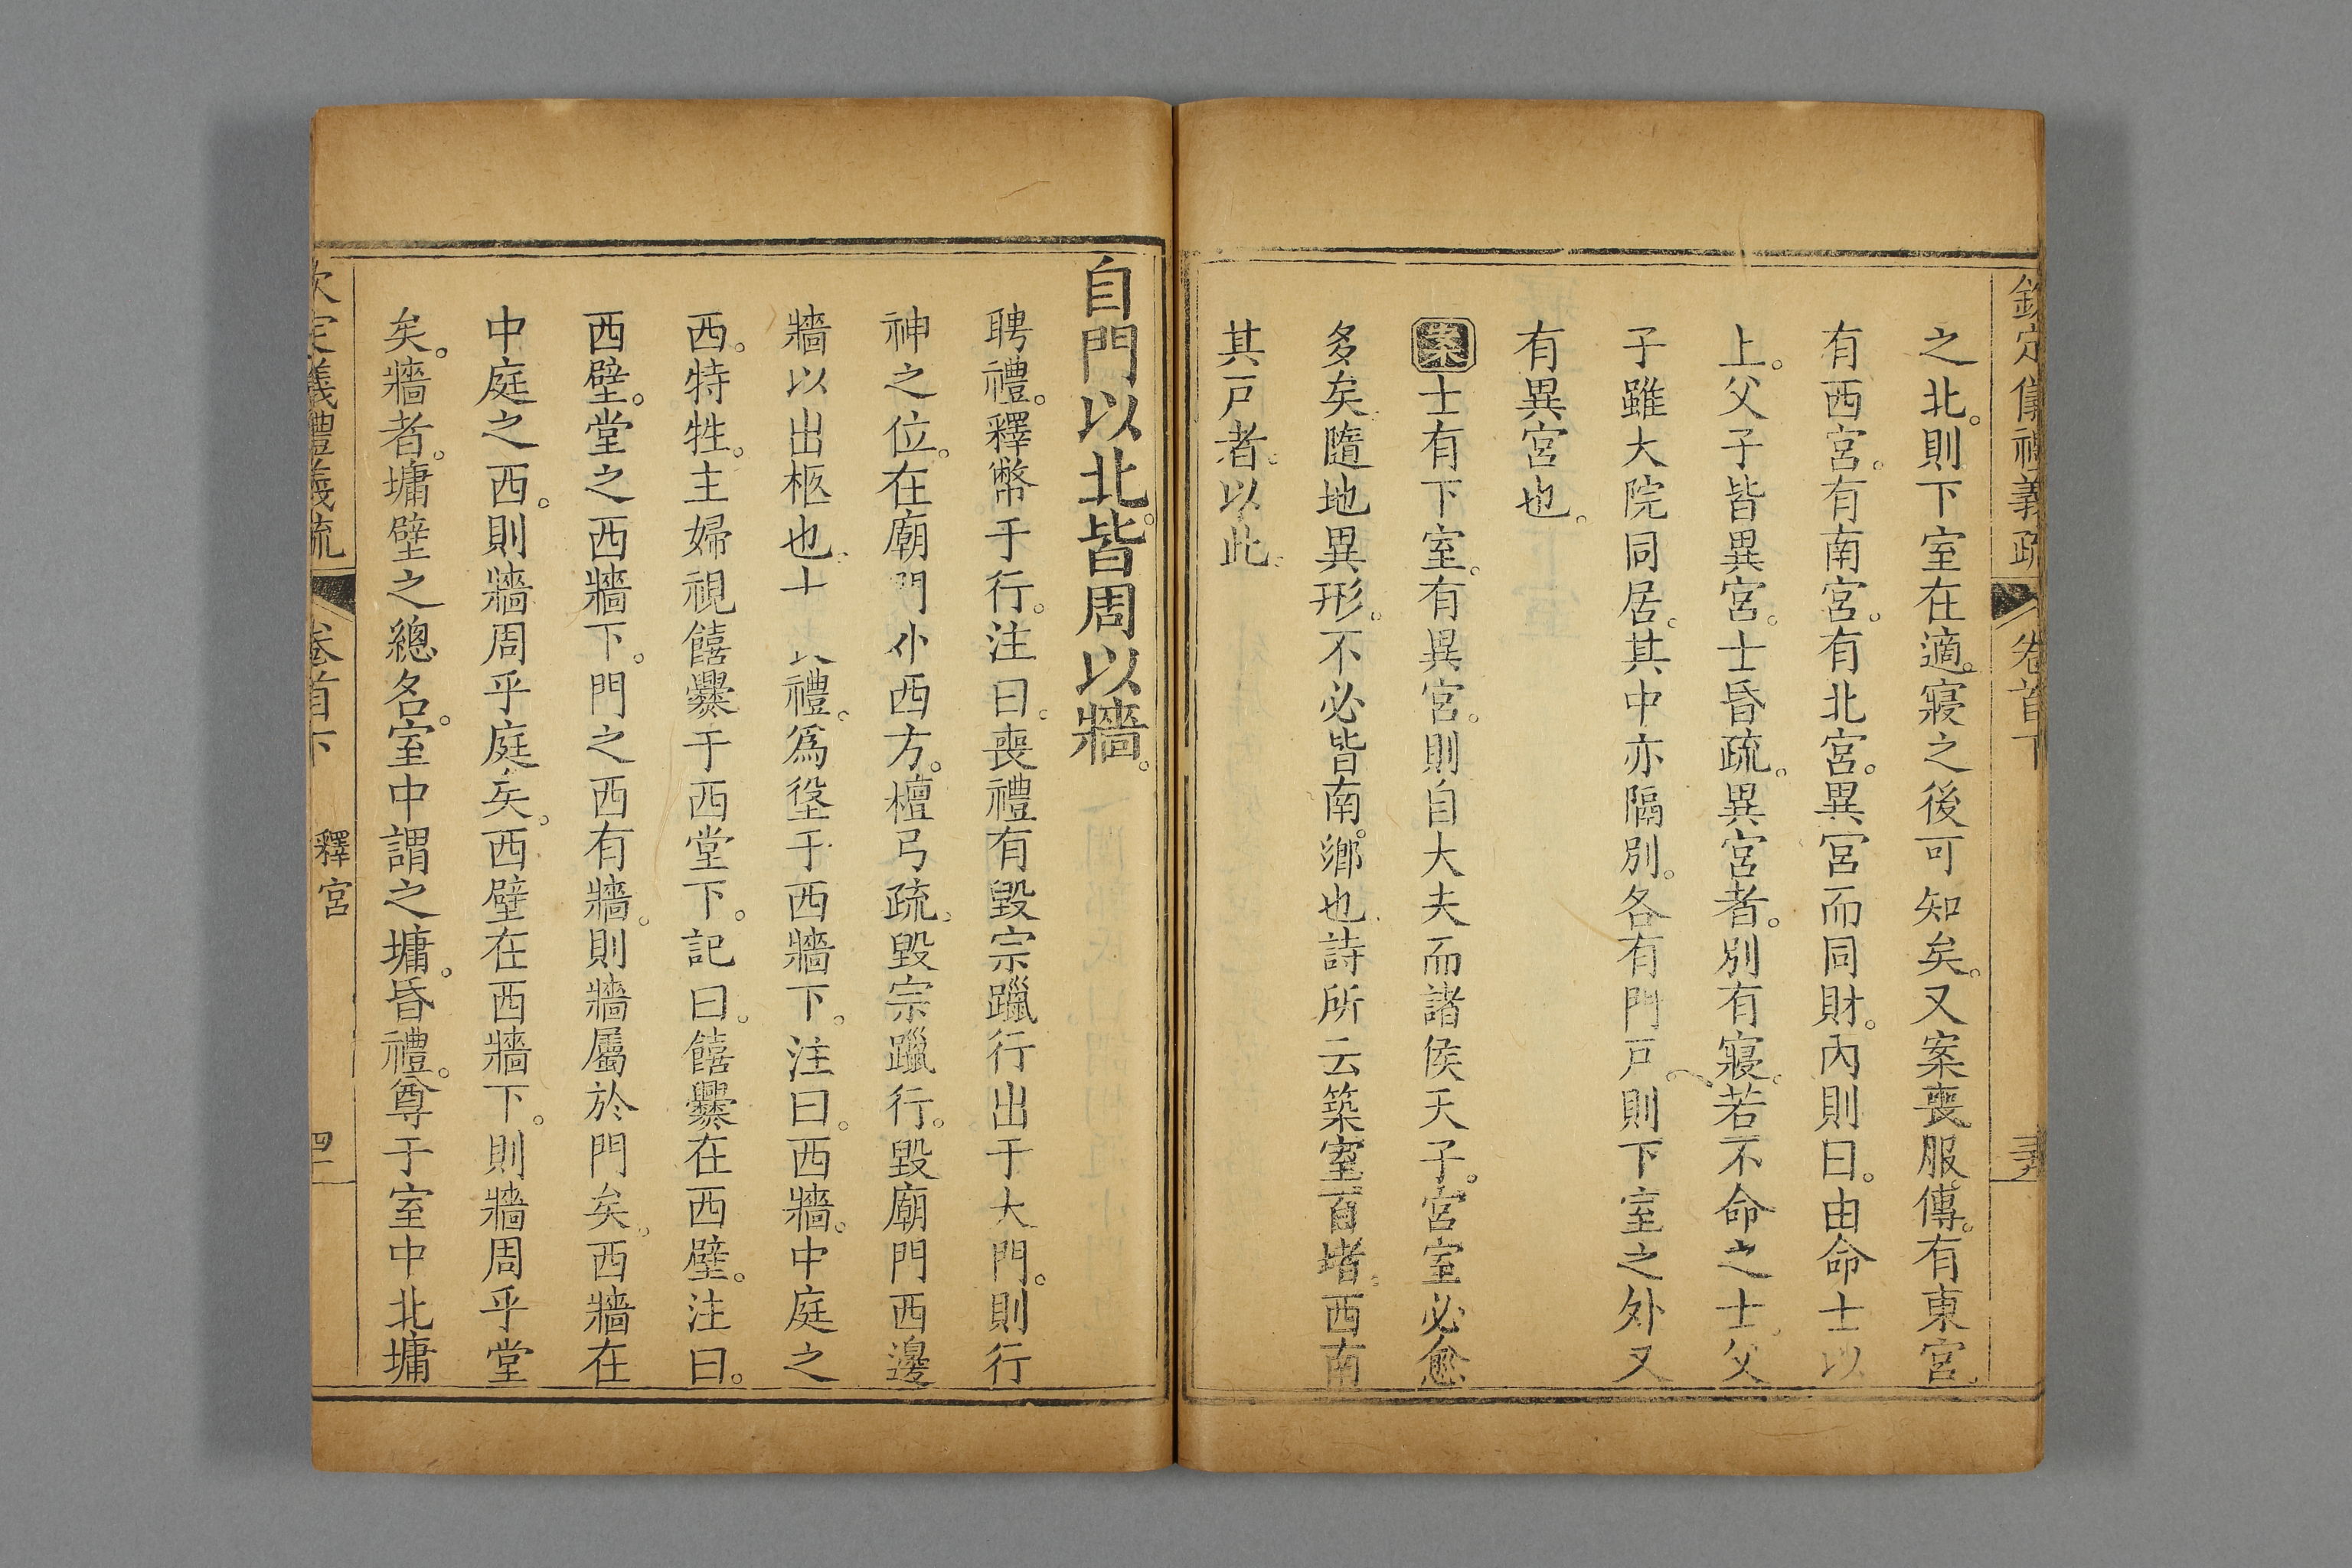 欽定儀禮義疏 卷首下
之北。則下室在適。寢之後可知矣。又案喪服傳。有東宮。
有西宮。有南宮。有北宮。異宮而同財。內則曰。由命士以
上。父子皆異宮。士昏疏。異宮者。別有寢。若不命之士。父
子雖大院同居。其中亦隔別。各有門戸則下室之外又
有異宮也。
案士有下室。有異宮。則自大夫而諸侯天子。宮室必愈
多矣。隨地異形。不必皆南。鄉也。詩所云築室百堵。西南
其戸者。以此。
自門以北。皆周以牆。
聘禮。釋幣于行。注曰。喪禮有毀宗躐行出于大門。則行
神之位。在廟門外西方。檀弓疏。毀宗躐行。毀廟門西邊
牆以出柩也。士喪禮。為垼于西牆下。注曰。西牆。中庭之
西。特牲。主婦視饎爨于西堂下。記曰。饎爨在西壁。注曰。
西壁。堂之西牆下。門之西有牆。則牆屬於門矣。西牆在
中庭之西。則牆周乎庭矣。西壁在西牆下。則牆周乎堂
矣。牆者。墉壁之總名。室中謂之墉。昏禮。尊于室中北墉
欽定儀禮義疏 卷首下 釋宮